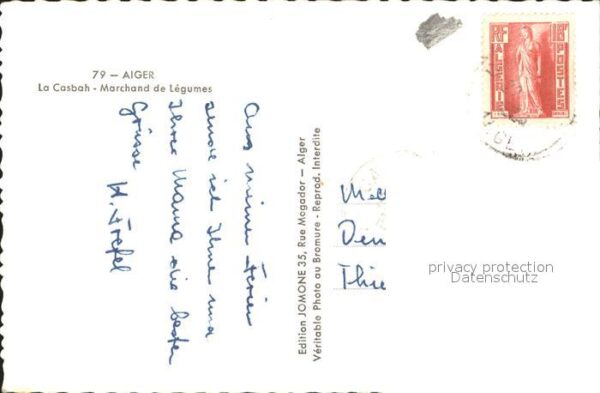 79 — AlGER
La Casbah - Marchand de Légumes
Aus meinen Ferien
sende ich Ihnen und
Ihrer Mama die besten
Grüsse
Edition JOMONE 35, Rue Mogador — Alger
Véritable Photo au Bromure - Reprod. Interdite
RF
18F
ALGERIE
POSTES
privacy protection
Datenschutz